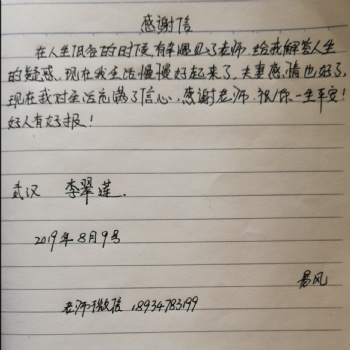 感谢信
在人生低谷的时候,有幸遇见了老师,给我解答人生
的疑惑,现在我生活慢慢好起来了,夫妻感情也好了,
现在我对生活充满了信心,感谢老师,祝你一生平安!
好人有好报!
武汉 李翠莲.
2019年8月9号
易风
老师微信:18934783199